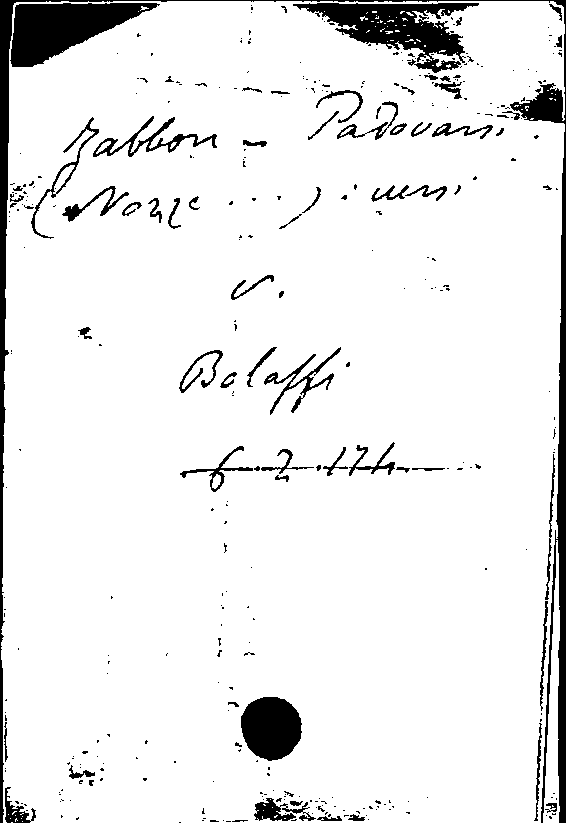 Zabbon - Padovani.
(Nozze ...) : versi
v.
Bolaffi
6 2 174